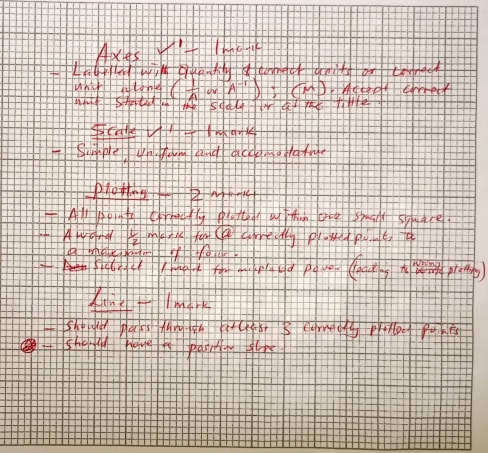 Axes ✓1 – 1 mark
– Labelled with Quantity & correct units or correct
unit alone (1/A or A⁻¹) ; (M). Accept correct
unit stated in the scale or at the tittle.
Scale ✓1 – 1 mark
– Simple, uniform and accomodative
Plotting – 2 marks
– All points correctly plotted within one small square.
– Award 1/2 mark for @ correctly plotted points to
a maximum of four.
– Subtract 1 mark for misplaced power (leading to wrong plotting)
Line – 1 mark
– Should pass through atleast 3 correctly plotted points
– Should have a positive slope